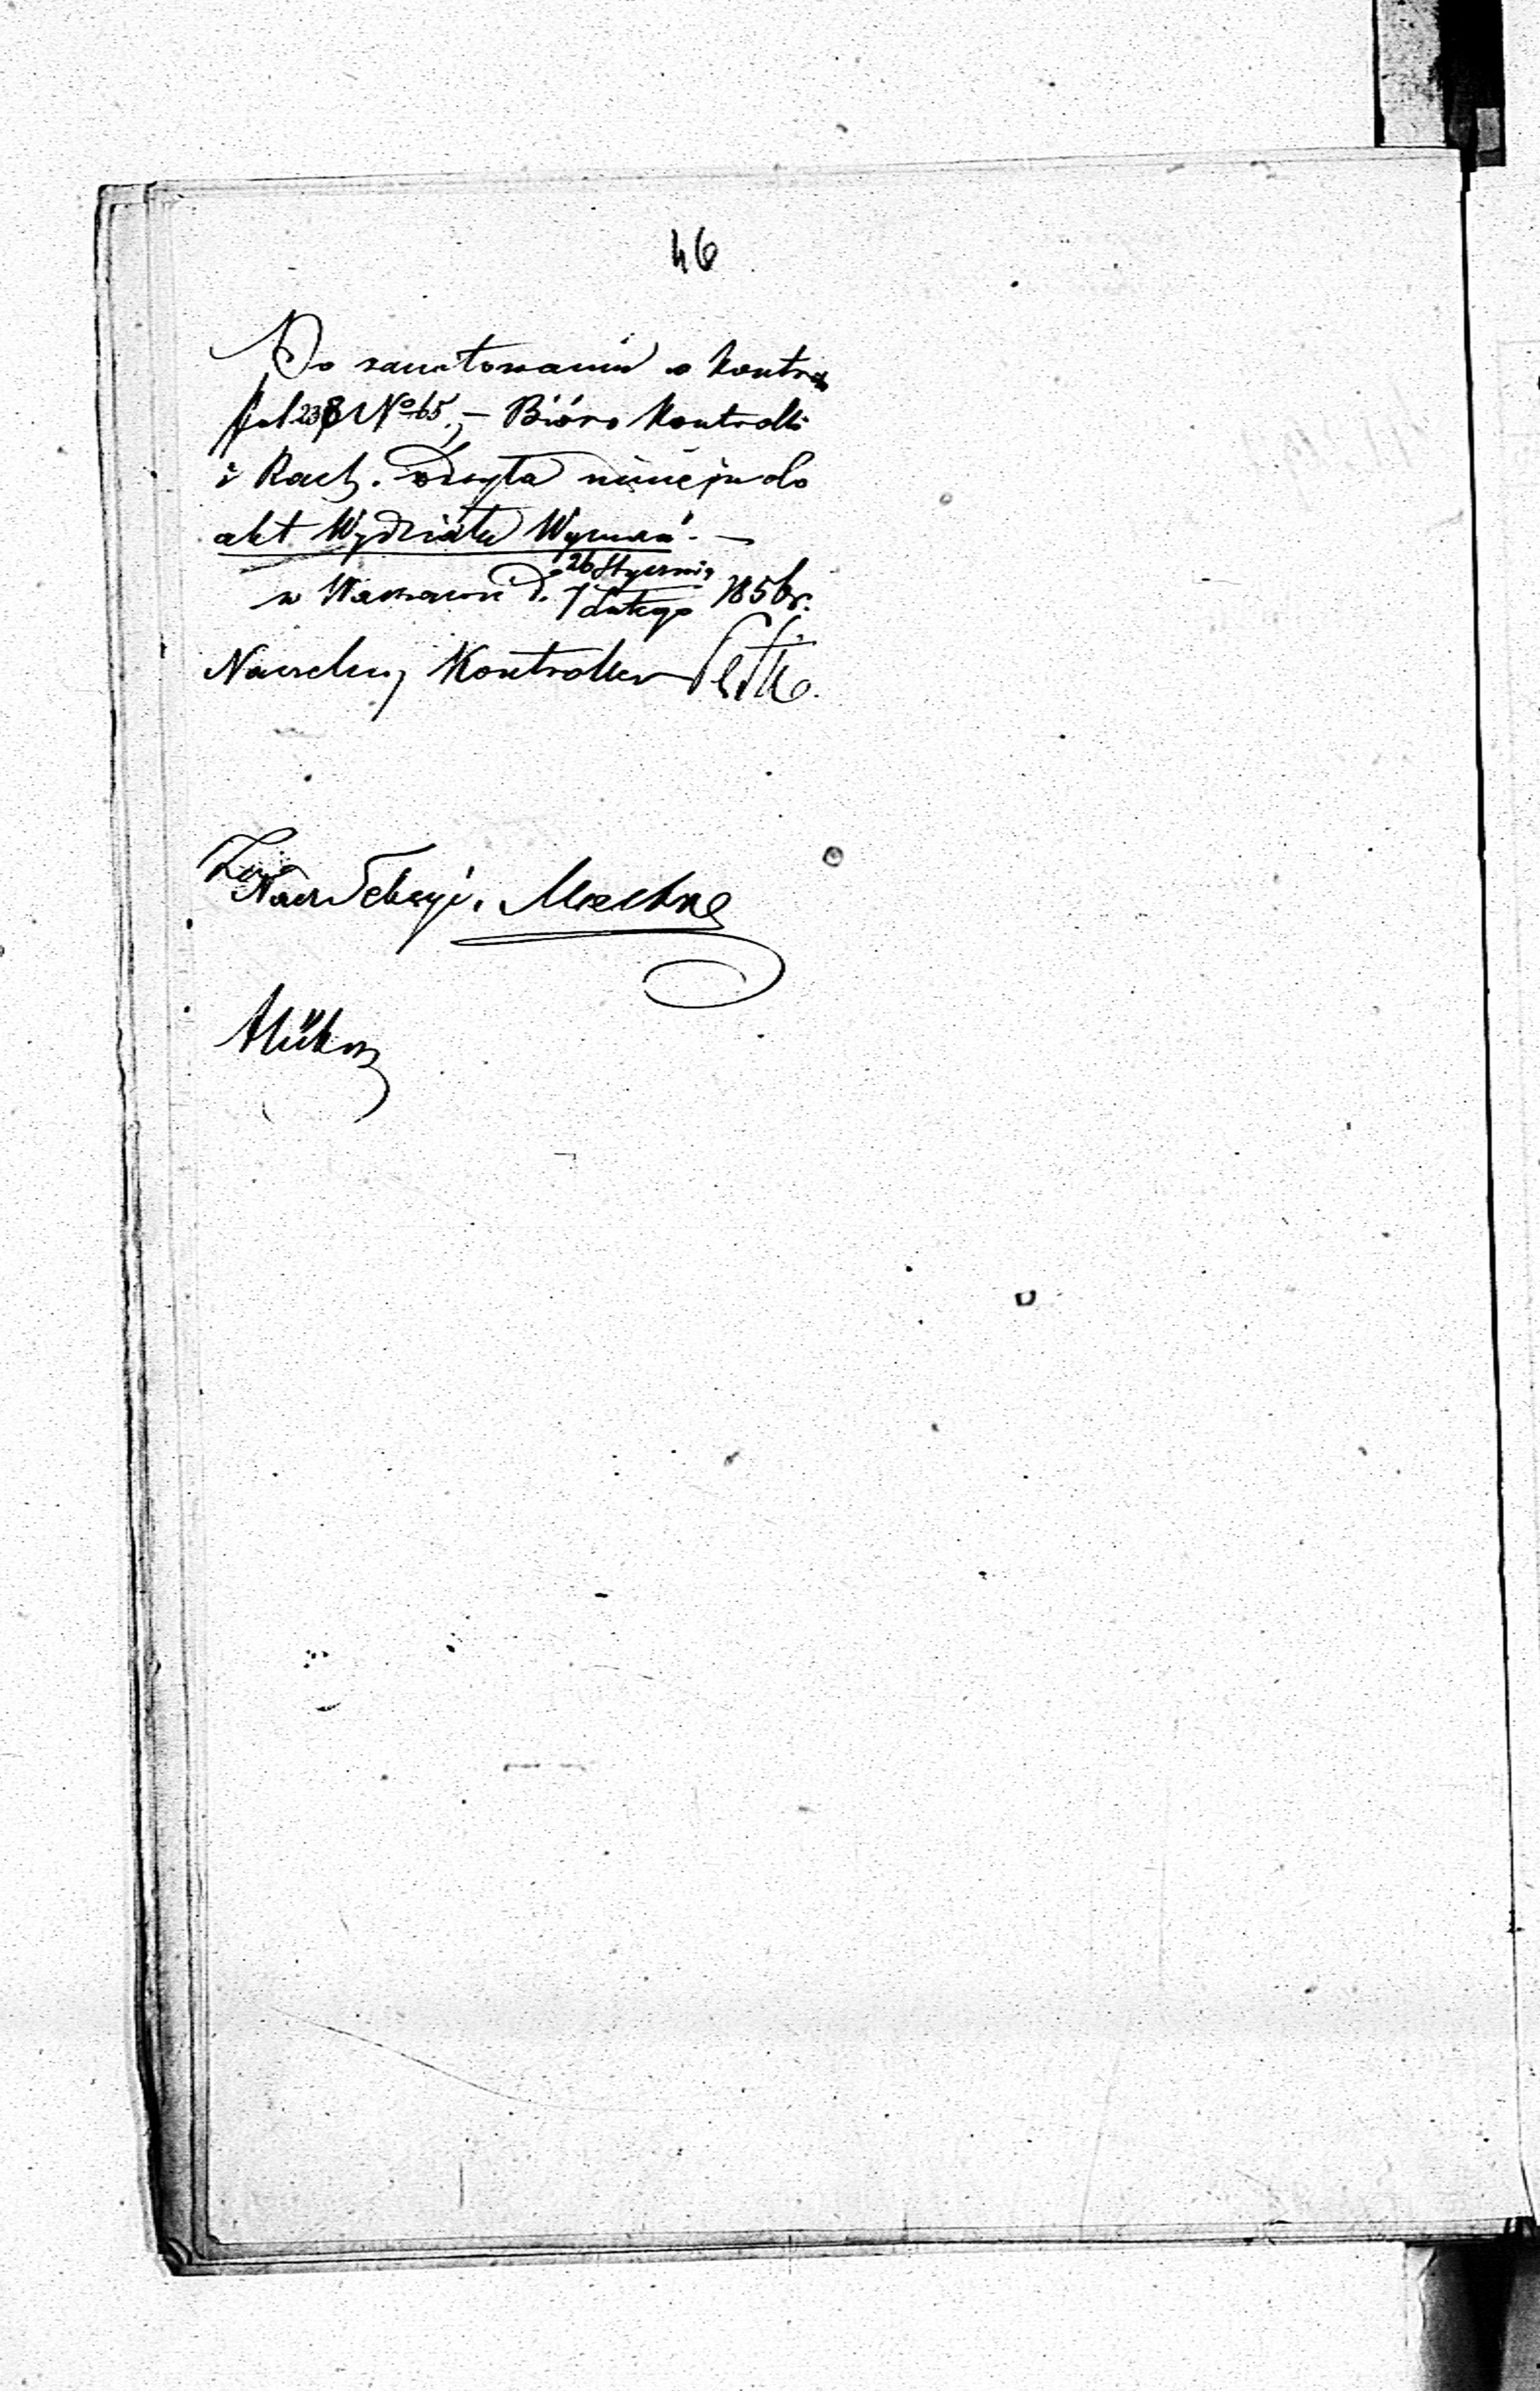 46
Po zanotowaniu w kontr
fol 238 No 65, – Bióro Kontrolli
i Rach. odsyła niniej. do
akt Wydziału Wyznań. –
w Warszawie d. 26 Stycznia / 7 Lutego 1856 r.
Naczelny Kontroller
Za
Nacz Sekcyi.